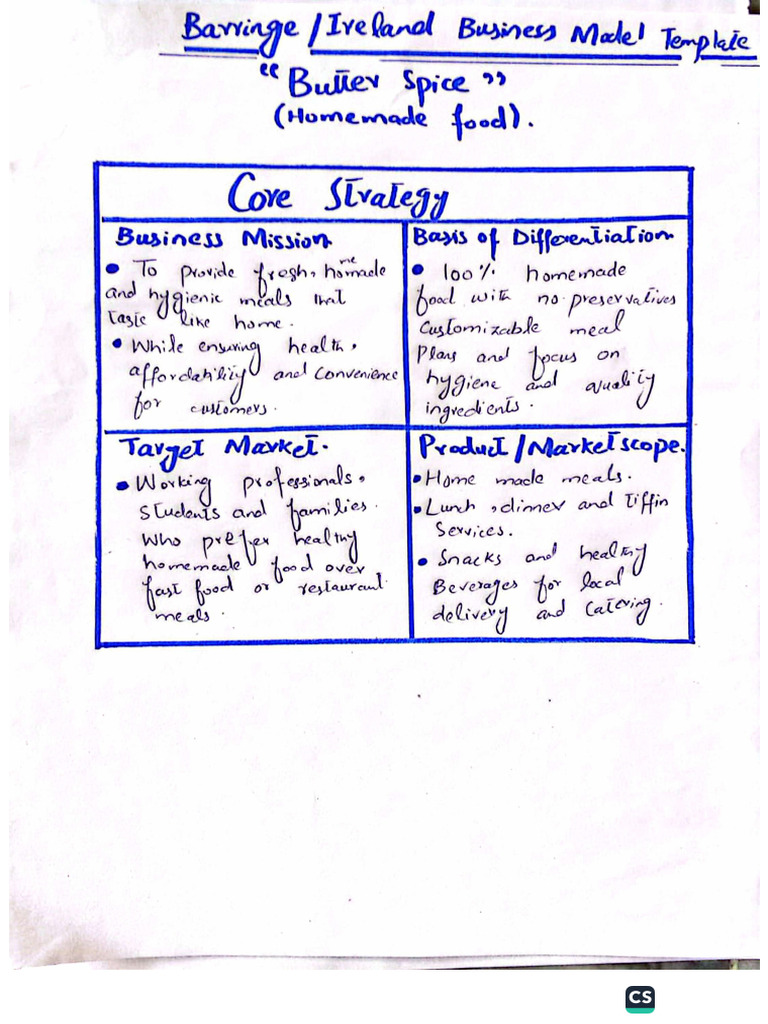 Barringe / Ireland Business Model Template
"Butter Spice"
(Homemade food).
Core Strategy
Business Mission
• To provide fresh, homemade
and hygienic meals that
taste like home.
• While ensuring health,
affordability and convenience
for customers.
Basis of Differentiation
• 100% homemade
food with no preservatives
Customizable meal
Plans and focus on
hygiene and quality
ingredients.
Target Market.
• Working professionals,
Students and families.
Who prefer healthy
homemade food over
fast food or restaurant
meals.
Product / Market scope.
• Home made meals.
• Lunch, dinner and tiffin
Services.
• Snacks and healthy
Beverages for local
delivery and catering.
CS